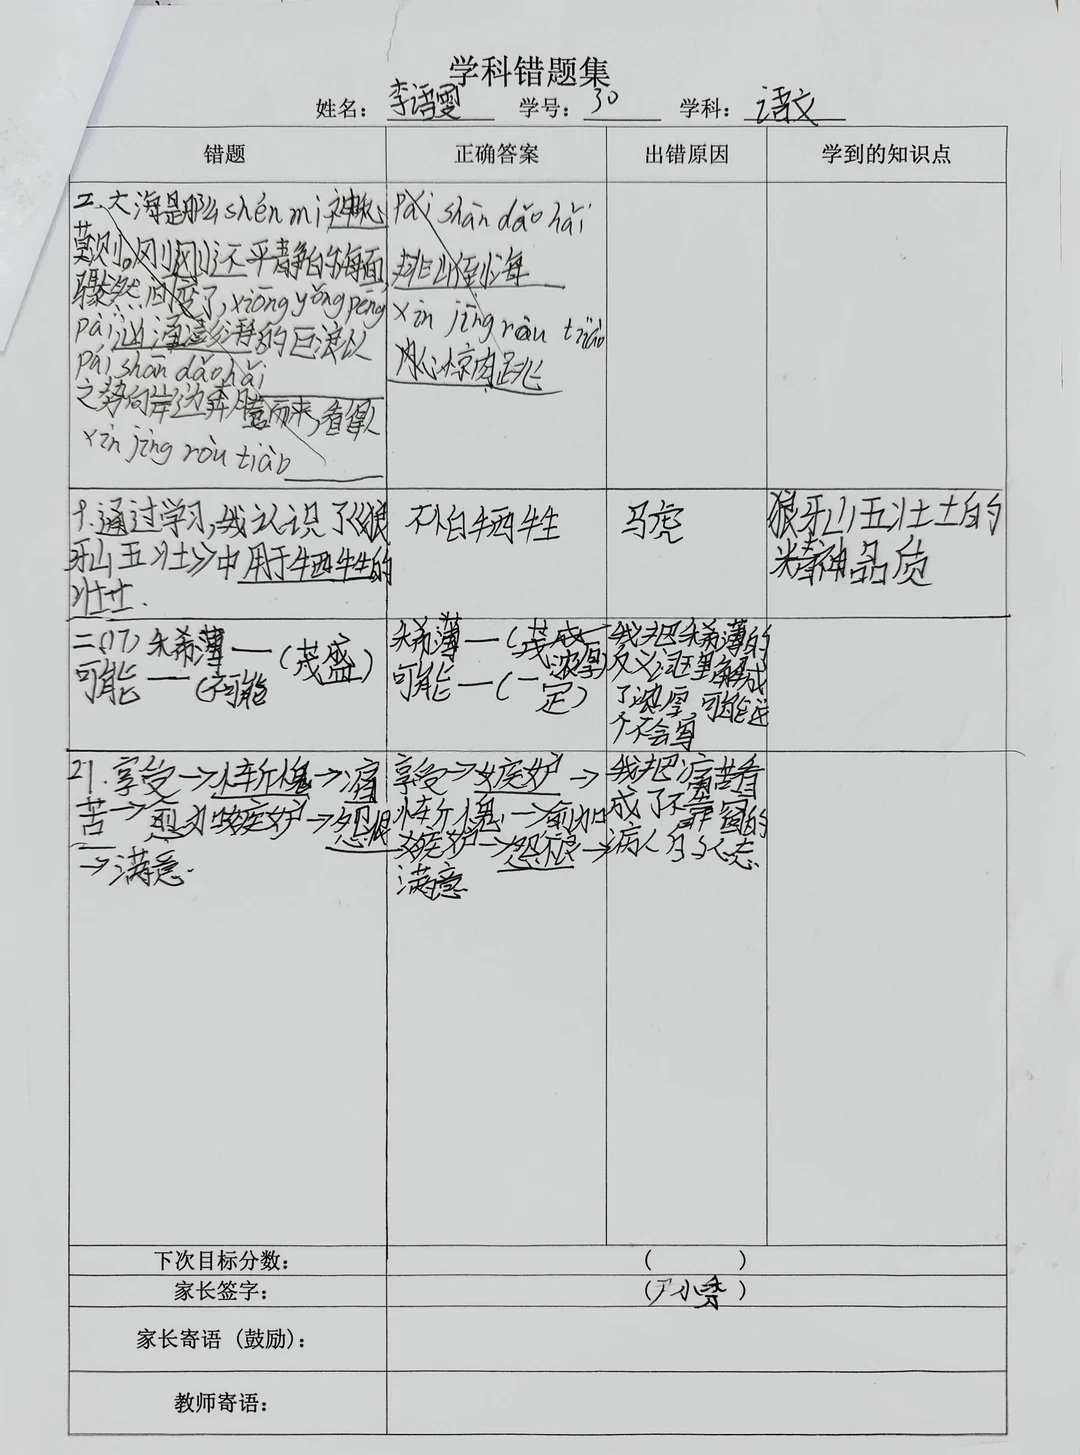 学科错题集
姓名：李语雯 学号：30 学科：语文
错题 正确答案 出错原因 学到的知识点
二、大海是那么shén mì神秘
莫测。刚刚还平静的海面，
骤然间变了，xiōng yǒng péng
pài汹涌澎湃的巨浪以
pái shān dǎo hǎi
之势向岸边奔腾而来，看得人
xīn jīng ròu tiào
pái shān dǎo hǎi
排山倒海
xīn jīng ròu tiào
心惊肉跳
十.通过学习，我认识了《狼
牙山五壮士》中用于牺牲的
壮士.
不怕牺牲
马虎
狼牙山五壮士的
精神品质
二(17)稀薄—(茂盛)
可能—(不可能
稀薄—(
浓厚)
可能—(一
定)
我把稀薄的
反义词理解成
了浓厚，可能这
个不会写
21.享受→惭愧→痛
苦→愈加嫉妒→怨恨
→满意.
享受→嫉妒→
惭愧→愈加
嫉妒→怨恨→
满意
我把痛苦看
成了不靠窗的
病人的状态
下次目标分数： ( )
家长签字： (尹小秀)
家长寄语（鼓励）：
教师寄语：